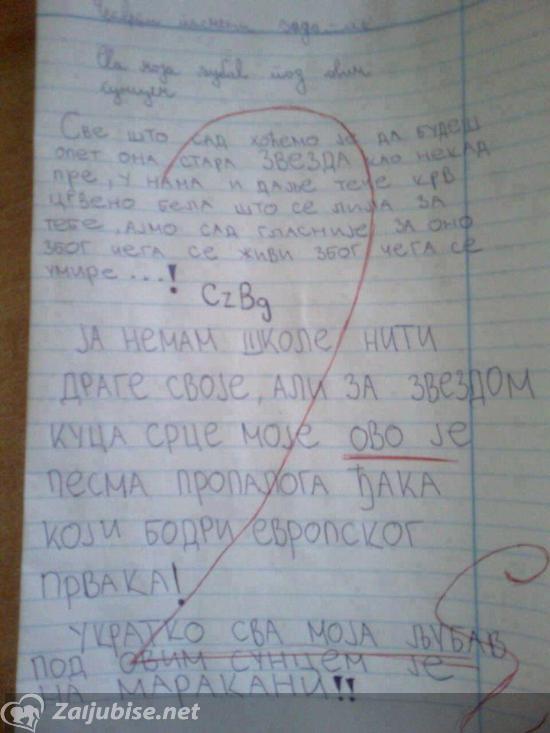 Четврти писмени задатак
Сва моја љубав под овим
сунцем
СВЕ ШТО САД ХОЋЕМО ЈЕ ДА БУДЕШ
ОПЕТ ОНА СТАРА ЗВЕЗДА КАО НЕКАД
ПРЕ, У НАМА И ДАЉЕ ТЕЧЕ КРВ
ЦРВЕНО БЕЛА ШТО СЕ ЛИЛА ЗА
ТЕБЕ, АЈМО САД ГЛАСНИЈЕ ЗА ОНО
ЗБОГ ЧЕГА СЕ ЖИВИ ЗБОГ ЧЕГА СЕ
УМИРЕ ...!
CzBg
ЈА НЕМАМ ШКОЛЕ НИТИ
ДРАГЕ СВОЈЕ, АЛИ ЗА ЗВЕЗДОМ
КУЦА СРЦЕ МОЈЕ ОВО ЈЕ
ПЕСМА ПРОПАЛОГА ЂАКА
КОЈИ БОДРИ ЕВРОПСКОГ
ПРВАКА!
УКРАТКО СВА МОЈА ЉУБАВ
ПОД ОВИМ СУНЦЕМ ЈЕ
НА МАРАКАНИ!!
Zaljubise.net